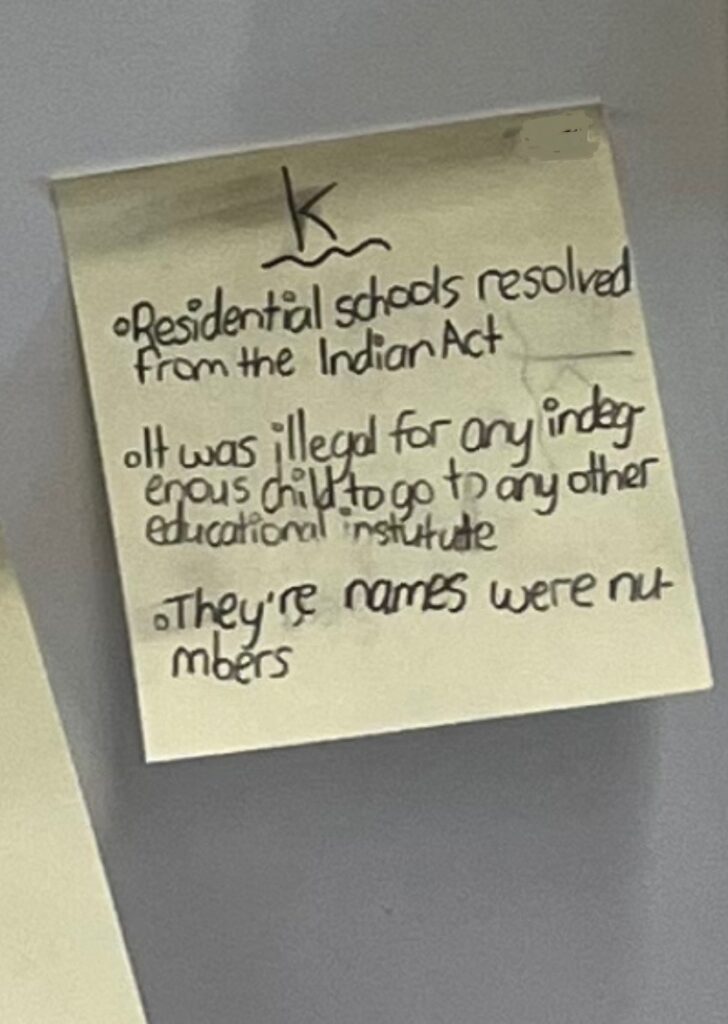 K
°Residential schools resolved
from the Indian Act
°It was illegal for any indeg-
enous child to go to any other
educational instutute
°They're names were nu-
mbers